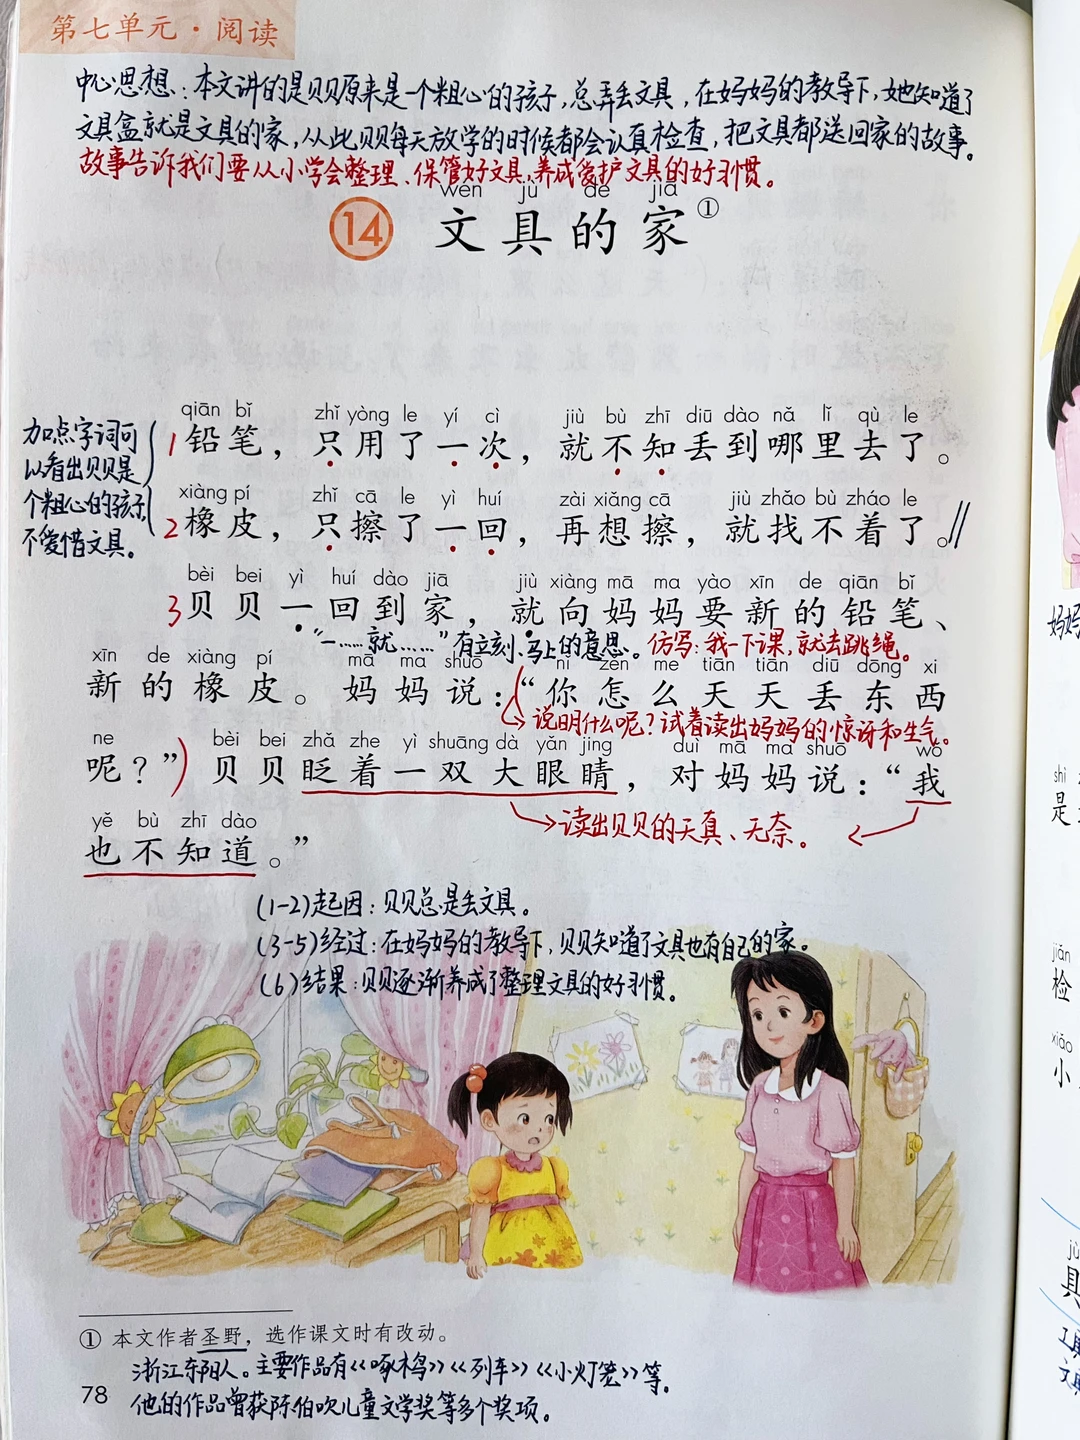 第七单元·阅读
中心思想：本文讲的是贝贝原来是一个粗心的孩子，总弄丢文具，在妈妈的教导下，她知道了
文具盒就是文具的家，从此贝贝每天放学的时候都会认真检查，把文具都送回家的故事。
故事告诉我们要从小学会整理、保管好文具，养成爱护文具的好习惯。
wén jù de jiā
14 文具的家①
加点字词可
以看出贝贝是
个粗心的孩子，
不爱惜文具。
qiān bǐ zhǐ yòng le yí cì jiù bù zhī diū dào nǎ lǐ qù le
1 铅笔，只用了一次，就不知丢到哪里去了。
xiàng pí zhǐ cā le yì huí zài xiǎng cā jiù zhǎo bù zháo le
2 橡皮，只擦了一回，再想擦，就找不着了。
bèi bei yì huí dào jiā jiù xiàng mā ma yào xīn de qiān bǐ
3 贝贝一回到家，就向妈妈要新的铅笔、
“一……就……”有立刻、马上的意思。仿写：我一下课，就去跳绳。
xīn de xiàng pí mā ma shuō nǐ zěn me tiān tiān diū dōng xi
新的橡皮。妈妈说：“你怎么天天丢东西
说明什么呢？试着读出妈妈的惊讶和生气。
ne bèi bei zhǎ zhe yì shuāng dà yǎn jing duì mā ma shuō wǒ
呢？”贝贝眨着一双大眼睛，对妈妈说：“我
读出贝贝的天真、无奈。
yě bù zhī dào
也不知道。”
(1-2)起因：贝贝总是丢文具。
(3-5)经过：在妈妈的教导下，贝贝知道了文具也有自己的家。
(6)结果：贝贝逐渐养成了整理文具的好习惯。
① 本文作者圣野，选作课文时有改动。
浙江东阳人。主要作品有《啄木鸟》《列车》《小灯笼》等。
他的作品曾获陈伯吹儿童文学奖等多个奖项。
78
妈妈
shì
是
jiǎn
检
xiǎo
小
jù
具